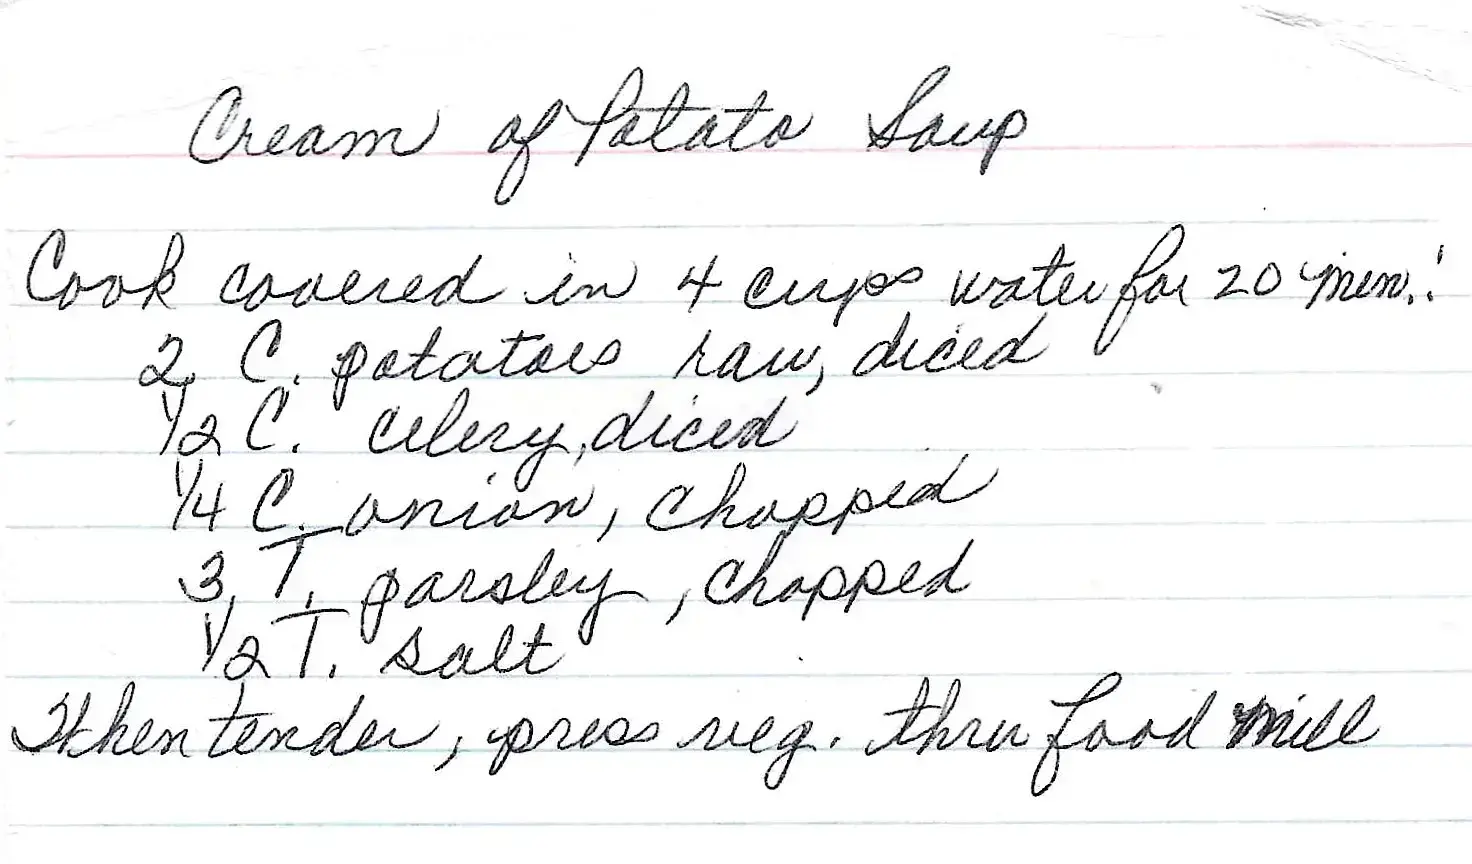 Cream of Potato Soup
Cook covered in 4 cups water for 20 min.:
2 C. potatoes raw, diced
1/2 C. celery, diced
1/4 C. onion, chopped
3 T. parsley, chopped
1/2 T. salt
When tender, press veg. thru food mill